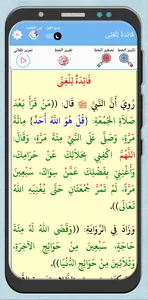 فائدة للغنى
تكبير الخط
تصغير الخط
تغيير الخط
تمرير تلقائي
فَائِدَةٌ لِلْغِنَى
رُوِيَ أَنَّ النَّبِيَّ ﷺ قَالَ: ((مَنْ قَرَأَ بَعْدَ
صَلَاةِ الْجُمُعَةِ: (قُلْ هُوَ اللَّهُ أَحَدٌ) مِائَةَ
مَرَّةٍ، وَصَلَّى عَلَى النَّبِيِّ مِائَةَ مَرَّةٍ،
وَقَالَ سَبْعِينَ مَرَّةً:
اللَّهُمَّ اكْفِنِي بِحَلَالِكَ عَنْ حَرَامِكَ،
وَأَغْنِنِي بِفَضْلِكَ عَمَّنْ سِوَاكَ، لَمْ
تَمُرَّ عَلَيْهِ جُمُعَتَانِ حَتَّى يُغْنِيَهُ اللَّهُ
تَعَالَى)).
وَزَادَ فِي الرِّوَايَةِ: ((وَقَضَى اللَّهُ لَهُ مِائَةَ
حَاجَةٍ، سَبْعِينَ مِنْ حَوَائِجِ الْآخِرَةِ،
وَثَلَاثِينَ مِنْ حَوَائِجِ الدُّنْيَا)).